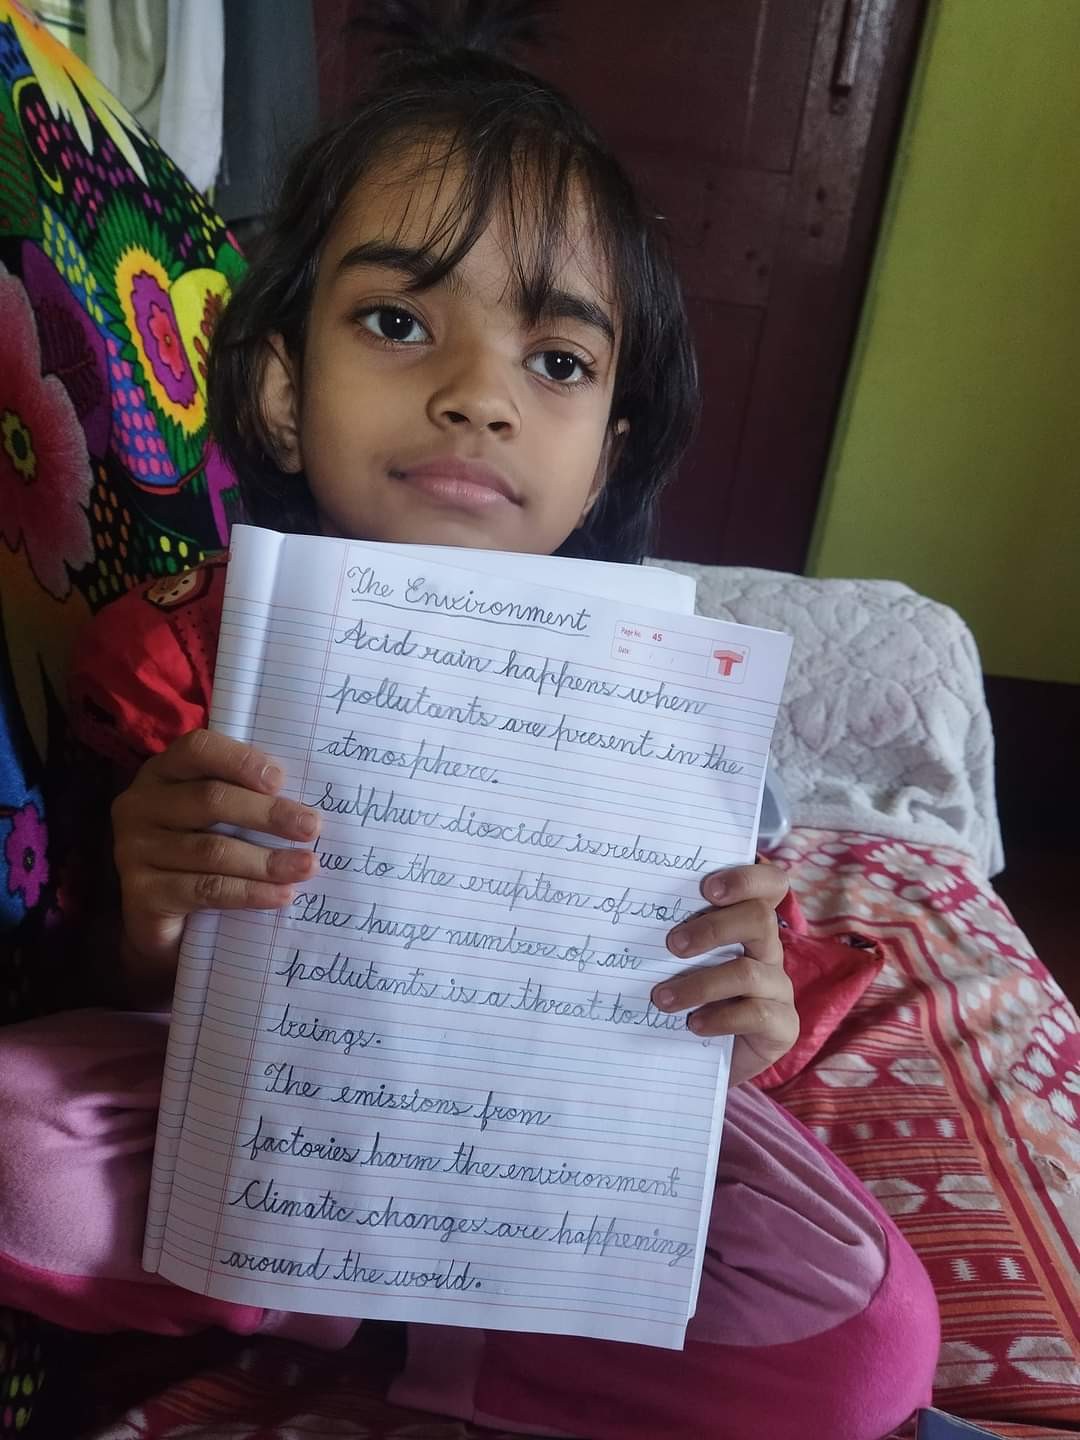 The Environment
Page No. 45
Date: / /
T
Acid rain happens when
pollutants are present in the
atmosphere.
Sulphur dioxide is released
due to the eruption of
The huge number of air
pollutants is a threat to
beings.
The emissions from
factories harm the environment
Climatic changes are happening
around the world.